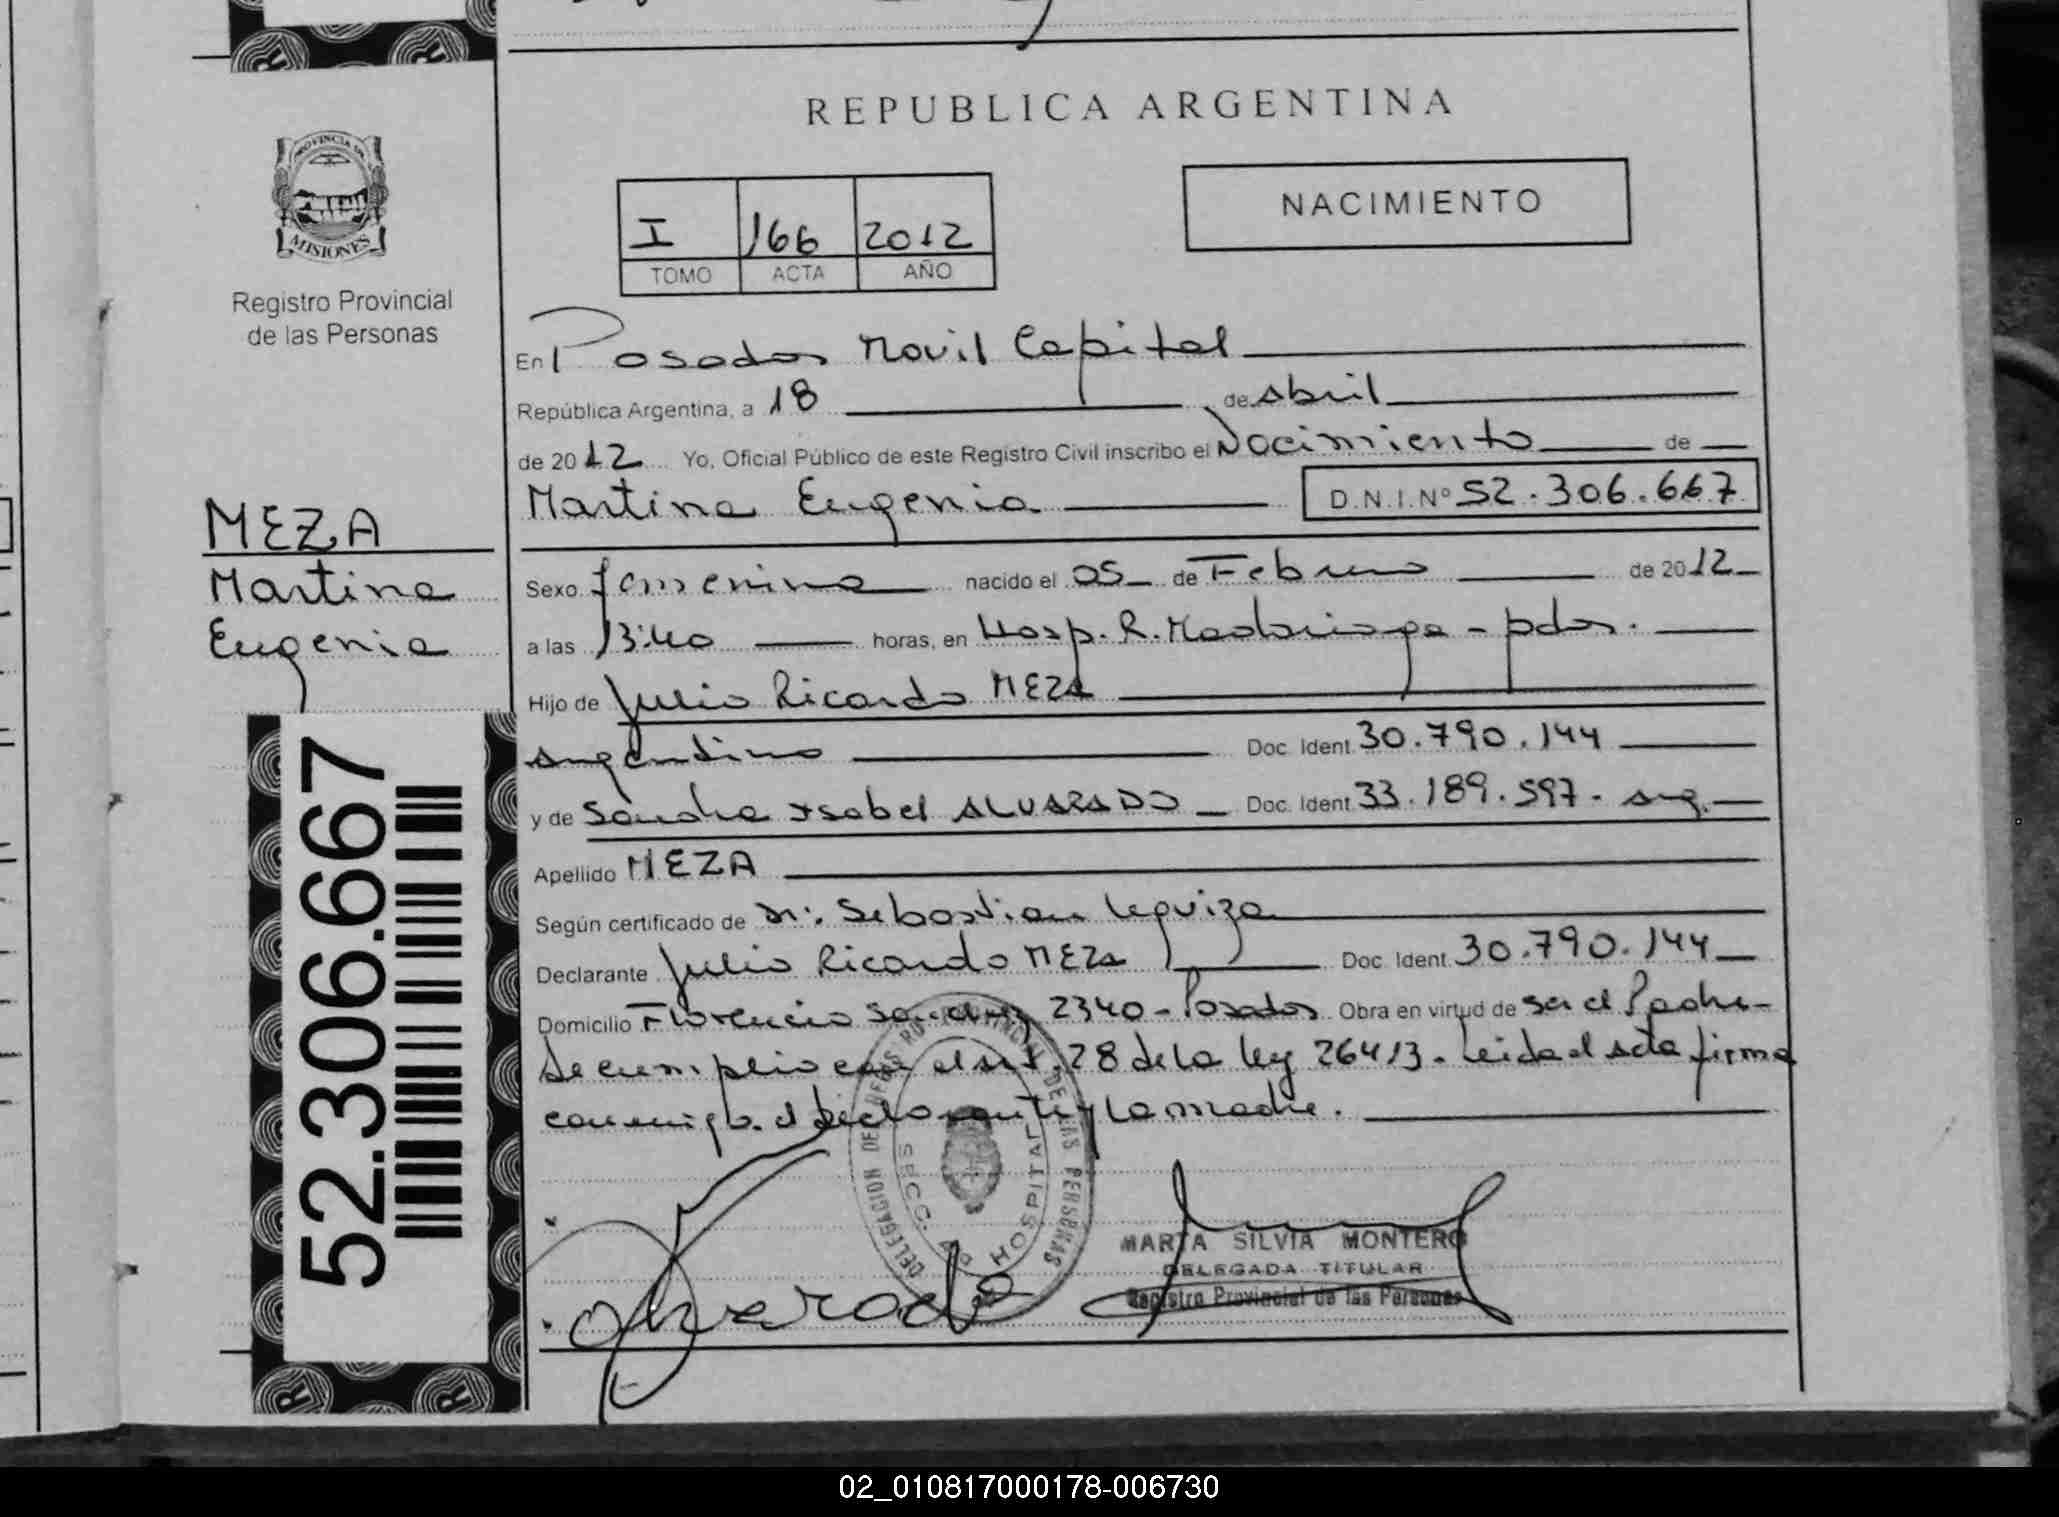 REPUBLICA ARGENTINA
PROVINCIA DE
MISIONES
Registro Provincial
de las Personas
NACIMIENTO
I 166 2012
TOMO ACTA AÑO
En Posadas Movil Capital
República Argentina, a 18 de abril
de 2012 Yo, Oficial Público de este Registro Civil inscribo el Nacimiento de
Martina Eugenia D.N.I.Nº 52.306.667
MEZA
Martina
Eugenia
Sexo femenino nacido el 05 de Febrero de 2012
a las 13:40 horas, en Hosp. R. Madariaga - pdas.
Hijo de Julio Ricardo MEZA
argentino Doc. Ident. 30.790.144
y de Sandra Isabel ALVARADO Doc. Ident. 33.189.597 - arg.
Apellido MEZA
Según certificado de Dr: Sebastian Leguiza
Declarante Julio Ricardo MEZA Doc. Ident. 30.790.144
Domicilio Florencio Sanchez 2340 - Posadas Obra en virtud de ser el Padre -
Se cumplio con el art. 28 de la ley 26413. Leida el acta firma
conmigo el declarante y la madre.
52.306.667
DELEGACION DEL REGISTRO PROVINCIAL DE LAS PERSONAS
SECC. HOSPITAL
Alvarado
MARTA SILVIA MONTERO
DELEGADA TITULAR
Registro Provincial de las Personas
02_010817000178-006730